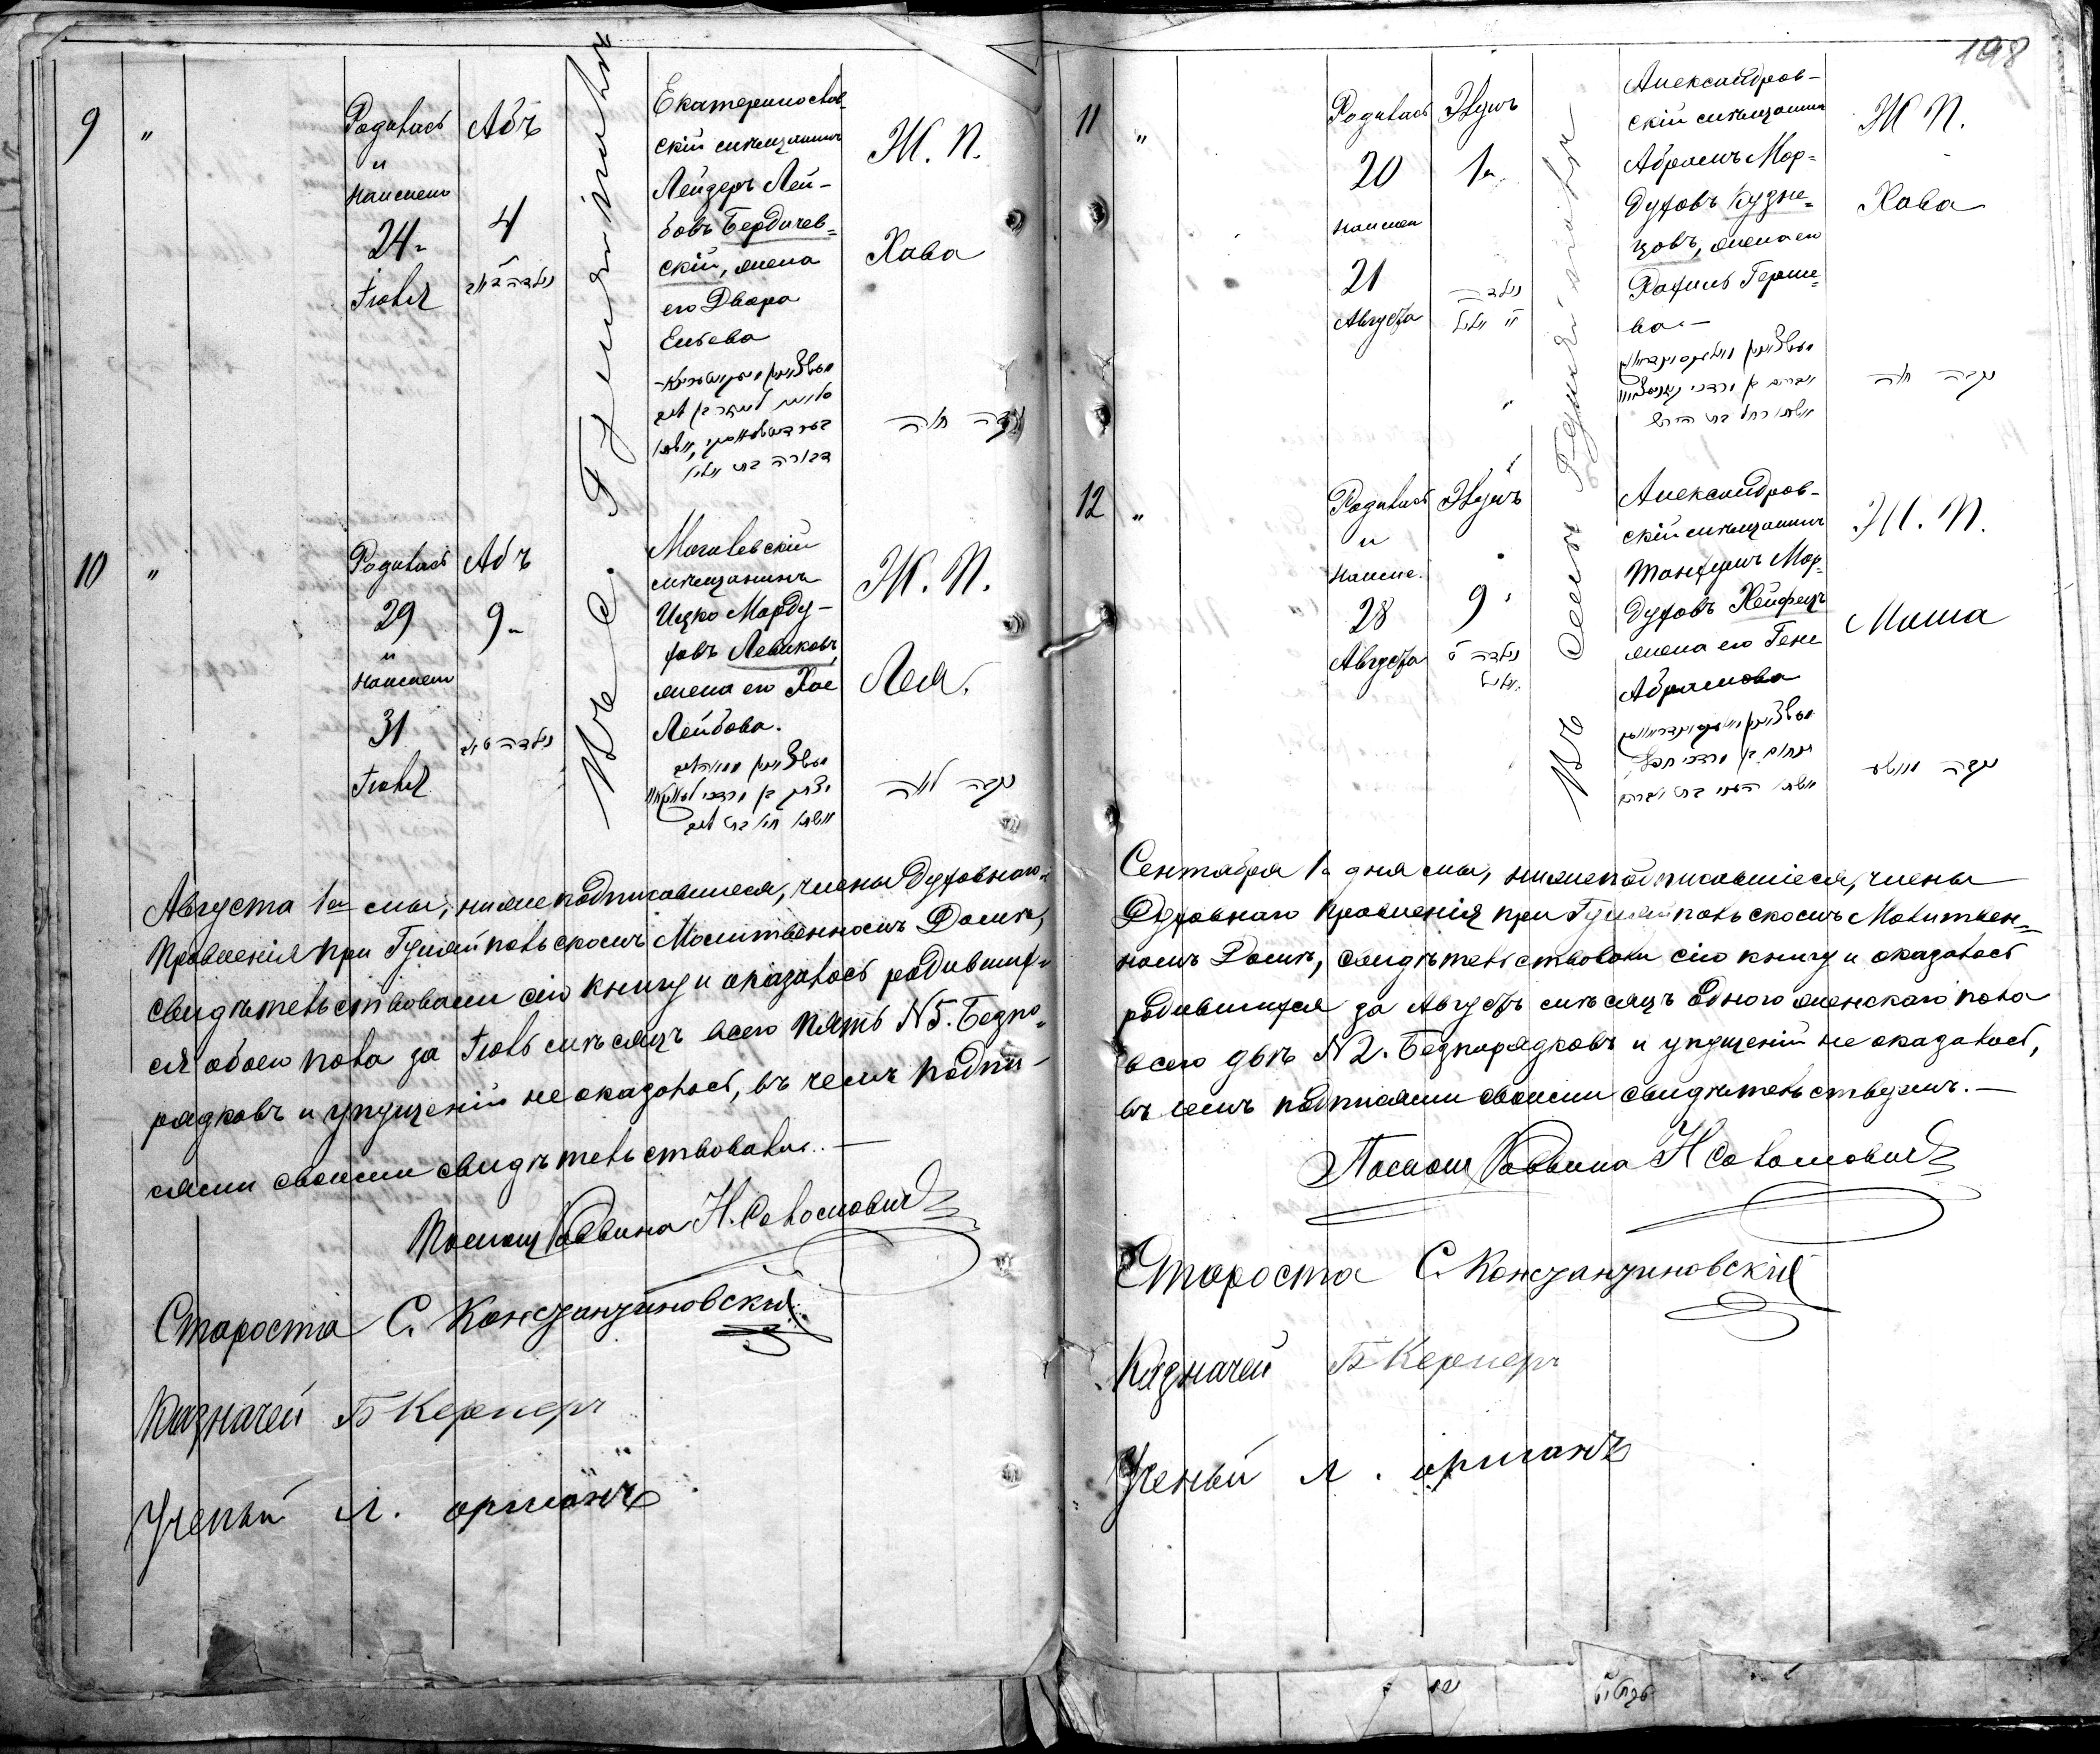 198
9 "
Родилась
и
Наимен
24
Іюля
Абъ
4
Въ С. Гуляйполѣ
Екатеринослав-
скій мѣщанинъ
Лейзеръ Лей-
бовъ Бердичев=
скій, жена
его Двора
Еліева
Ж. П.
Хава
נקבה חוה
10 "
Родилась
29
и
Наимен
31
Іюля
Абъ
9
Могилевскій
мѣщанинъ
Ицко Морду-
ховъ Левиковъ,
жена его Хае
Лейбова.
יצחק בן מרדכי
אשתו חי' בת לייב
Ж. П.
Лея.
נקבה לאה
Августа 1го мы, нижеподписавшіеся, члены Духовнаго
Правленія при Гуляйпольскомъ Молитвенномъ Домѣ,
свидѣтельствовали сію книгу и оказалось родивших-
ся обоего пола за Іюль мѣсяцъ всего пять N 5. Безпо=
рядковъ и упущеній не оказалось, въ чемъ подпи-
сями своими свидѣтельствовали. —
Помощ Раввина Н. Соломович
Староста С. Константиновский
Казначей Б Кернеръ
Ученый л. орманъ
11 "
Родилась
20
Наимен
21
Августа
Элулъ
1
נולדה
Въ Селѣ Гуляйполѣ
Александров-
скій мѣщанинъ
Абрамъ Мор=
духовъ Кузне=
цовъ, жена его
Рахиль Герше=
ва. —
אשתו רחל בת הירש
Ж П.
Хава
נקבה חוה
12 "
Родилась
и
Наиме.
28
Августа
Элулъ
9
נולדה ט
אלול
Александров-
скій мѣщанинъ
Танхумъ Мор=
духовъ Хейфецъ
жена его Гене
Абрамова
Ж. П.
Маша
נקבה מאשע
Сентября 1го дня мы, нижеподписавшіеся, члены
Духовнаго Правленія при Гуляйпольскомъ Молитвен=
номъ Домѣ, свидѣтельствовали сію книгу и оказалось
родившихся за Августъ мѣсяцъ одного женскаго пола
всего двѣ N 2. Безпорядковъ и упущеній не оказалось,
въ чемъ подписями своими свидѣтельствуемъ. —
Помощ Раввина Н Соломович
Староста С. Константиновскій
Казначей Б Кернеръ
Ученый л. орманъ